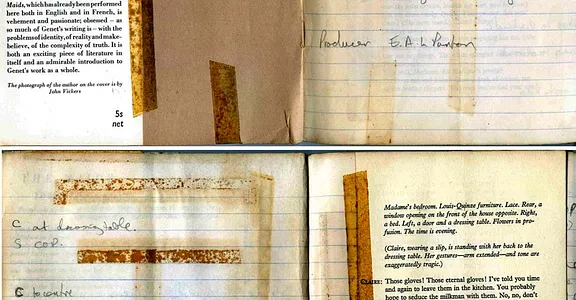 Maids, which has already been performed
here both in English and in French, is
vehement and passionate; obsessed – as
so much of Genet's writing is – with the
problems of identity, of reality and make-
believe, of the complexity of truth. It is
both an exciting piece of literature in
itself and an admirable introduction to
Genet's work as a whole.
The photograph of the author on the cover is by
John Vickers
5s
net
Producer E. A. L.
C at dressing table.
S
C to centre
Madame's bedroom. Louis-Quinze furniture. Lace. Rear, a
window opening on the front of the house opposite. Right,
a bed. Left, a door and a dressing table. Flowers in pro-
fusion. The time is evening.
(Claire, wearing a slip, is standing with her back to the
dressing table. Her gestures—arm extended—and tone are
exaggeratedly tragic.)
CLAIRE: Those gloves! Those eternal gloves! I've told you time
and again to leave them in the kitchen. You probably
hope to seduce the milkman with them. No, no, don't